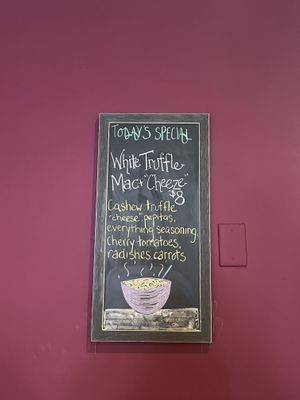 TODAY'S SPECIAL
White Truffle
Mac+"Cheeze"
$8
Cashew truffle
"cheese" pepitas,
everything seasoning,
Cherry tomatoes,
radishes, carrots